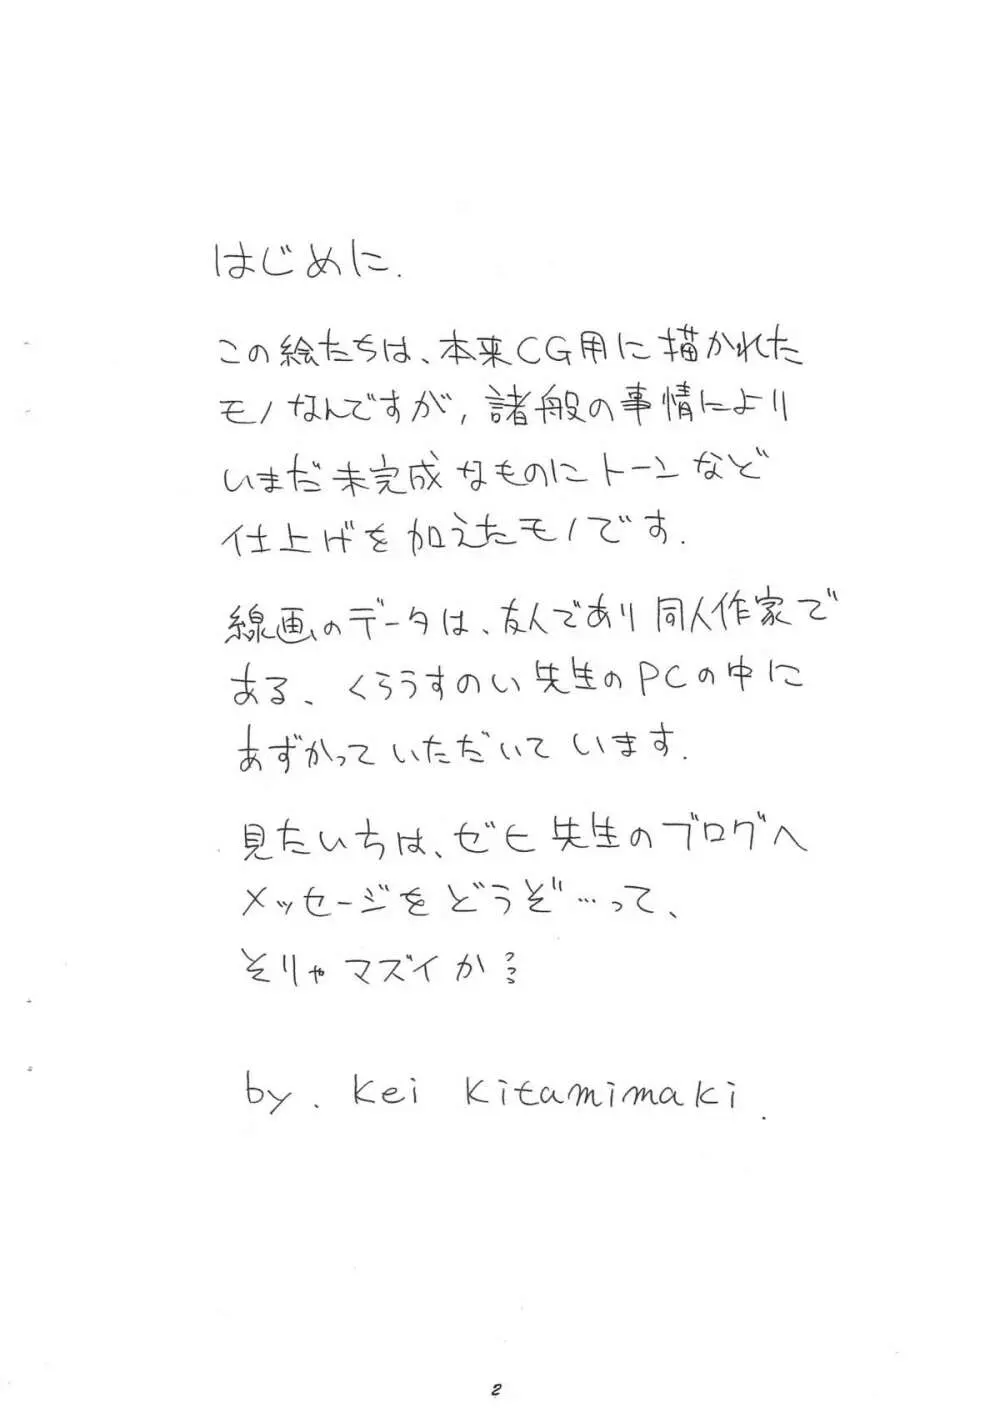 はじめに.
この絵たちは、本来CG用に描かれた
モノなんですが, 諸般の事情により
いまだ未完成なものにトーンなど
仕上げを加えたモノです.
線画のデータは、友人であり同人作家で
ある、くろうすのい先生のPCの中に
あずかっていただいています.
見たいちは、ぜヒ先生のブログへ
メッセージをどうぞ…って、
そりゃマズイか
by. Kei Kitamimaki.
2